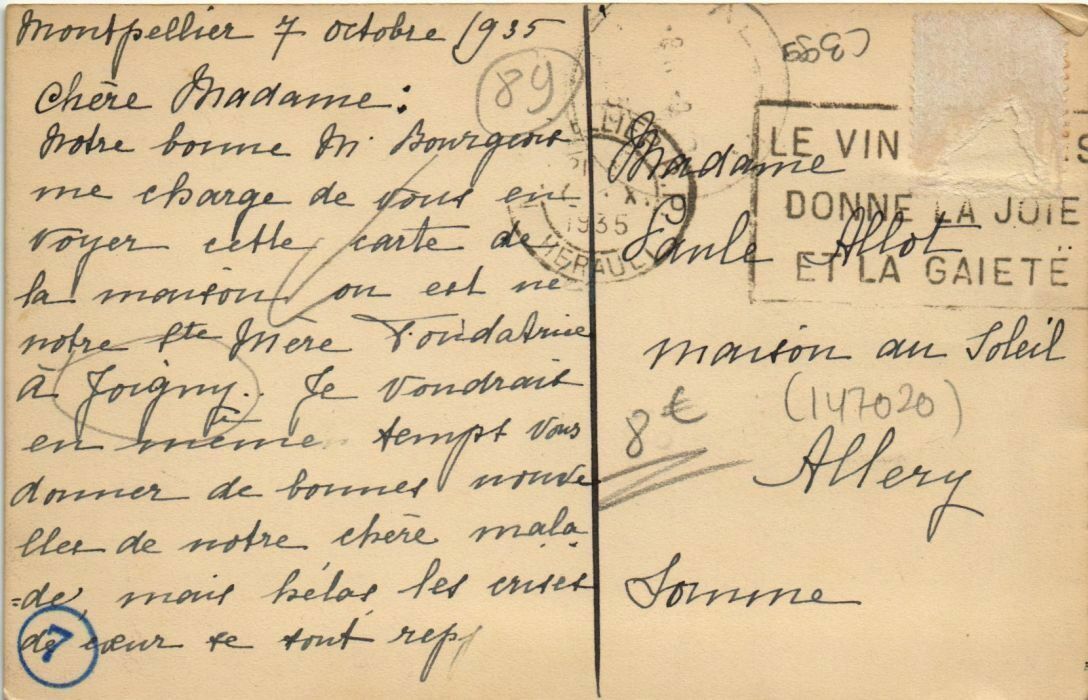 Montpellier 7 octobre 1935
Chère Madame:
Notre bonne M. Bourgeois
me charge de vous en
voyer cette carte de
la maison ou est né
notre Ste Mère Fondatrice
à Joigny. Je voudrais
en même tempt vous
donner de bonnes nouve
lles de notre chère mala
=de, mais hélas les crises
de cœur se sont rep
7
89
1935
HERAULT
LE VIN
DONNE LA JOIE
ET LA GAIETÉ
Madame
Paule Allot
maison du Soleil
(147020)
8€
Allery
Somme